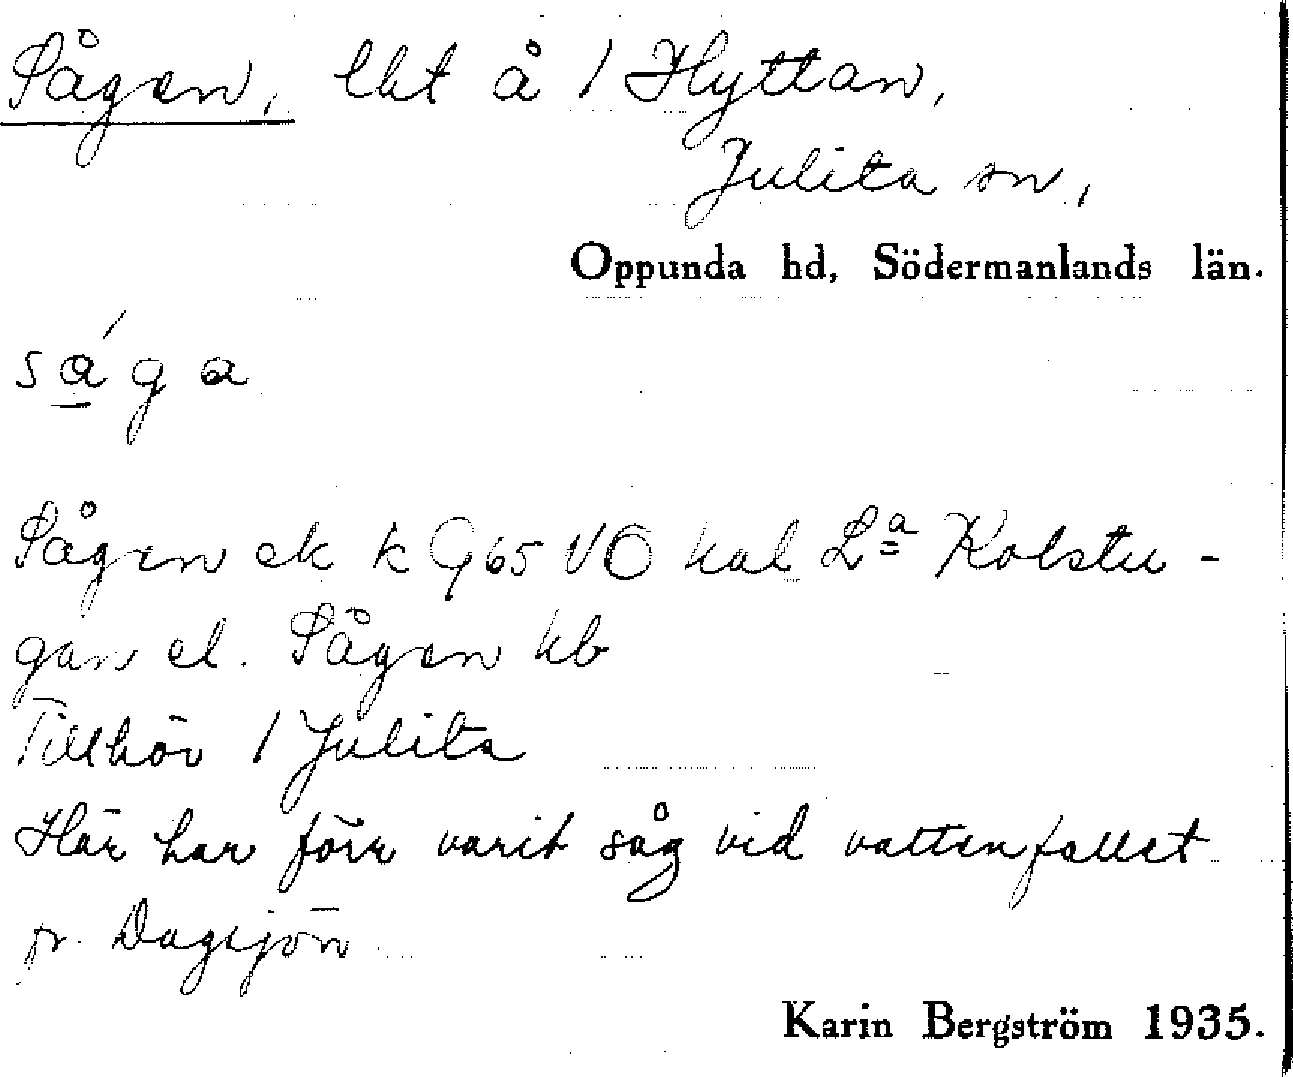 Sågen, lht å 1 Hyttan,
Julita sn,
Oppunda hd, Södermanlands län.
sá̱ga
Sågen ek k G65 VO hal L:a Kolstu-
gan el. Sågen hb
Tillhör 1 Julita
Här har förr varit såg vid vattenfallet
fr. Dagsjön
Karin Bergström 1935.